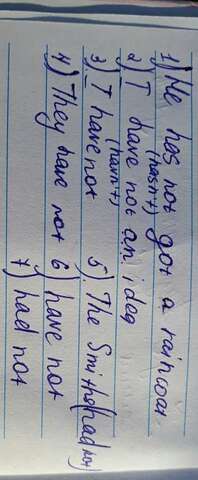 1) He hes not got a raincoat
(hasn+)
2) I have not an idag
(havn+)
3) I have not 5). The Smithe(had not)
4) They have not 6) have not
7) had not